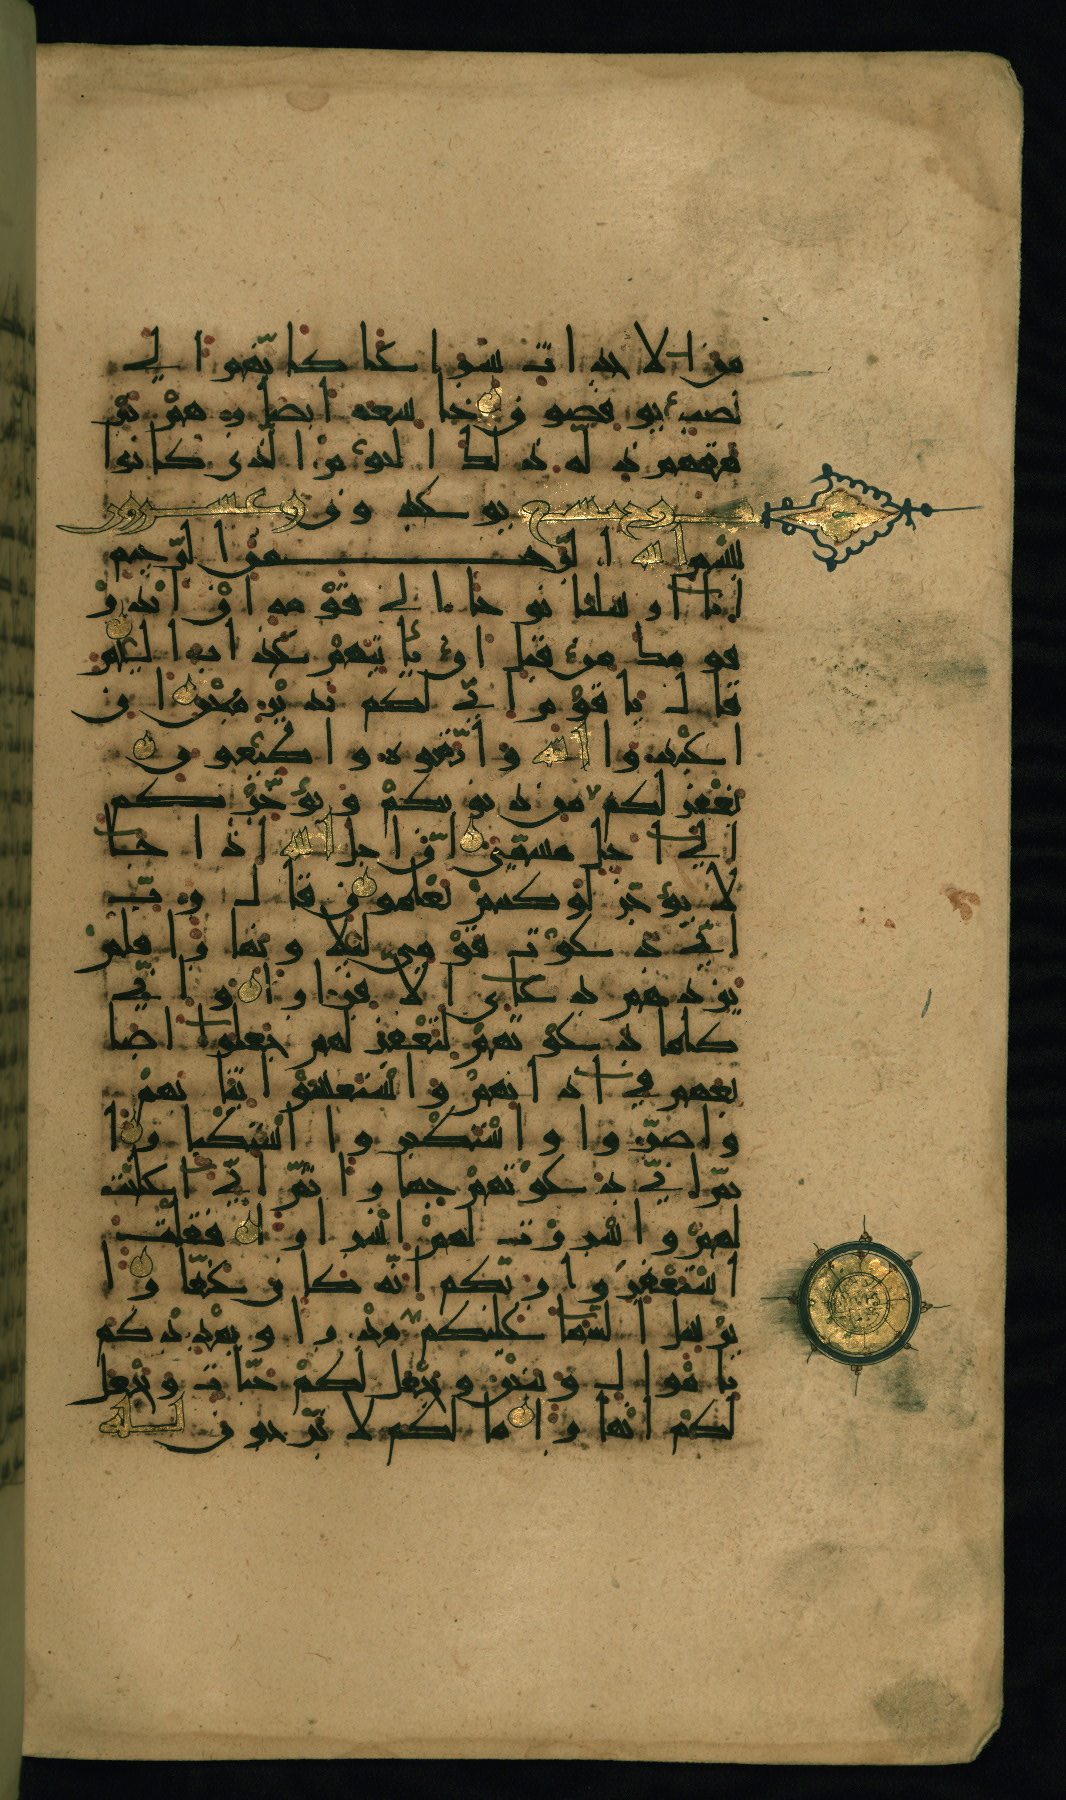 من الاجداث سراعا كانهم الى
نصب يوفضون خاشعة ابصارهم تر
هقهم ذلة ذلك اليوم الذى كانوا
نوح تسع يوعدون وعشرون
بسم الله الرحمن الرحيم
انا ارسلنا نوحا الى قومه ان انذر
قومك من قبل ان ياتيهم عذاب اليم
قال يا قوم انى لكم نذير مبين ان
اعبدوا الله واتقوه واطيعون
يغفر لكم من ذنوبكم ويؤخركم
الى اجل مسمى ان اجل الله اذا جا
لا يؤخر لو كنتم تعلمون قال رب
انى دعوت قومى ليلا ونهارا فلم
يزدهم دعاى الا فرارا وانى
كلما دعوتهم لتغفر لهم جعلوا اصا
بعهم فى اذانهم واستغشوا ثيابهم
واصروا واستكبروا استكبارا
ثم انى دعوتهم جهارا ثم انى اعلنت
لهم واسررت لهم اسرارا فقلت
استغفروا ربكم انه كان غفارا
يرسل السما عليكم مدرارا ويمددكم
باموال وبنين ويجعل لكم جنات ويجعل
لكم انهارا ما لكم لا ترجون لله